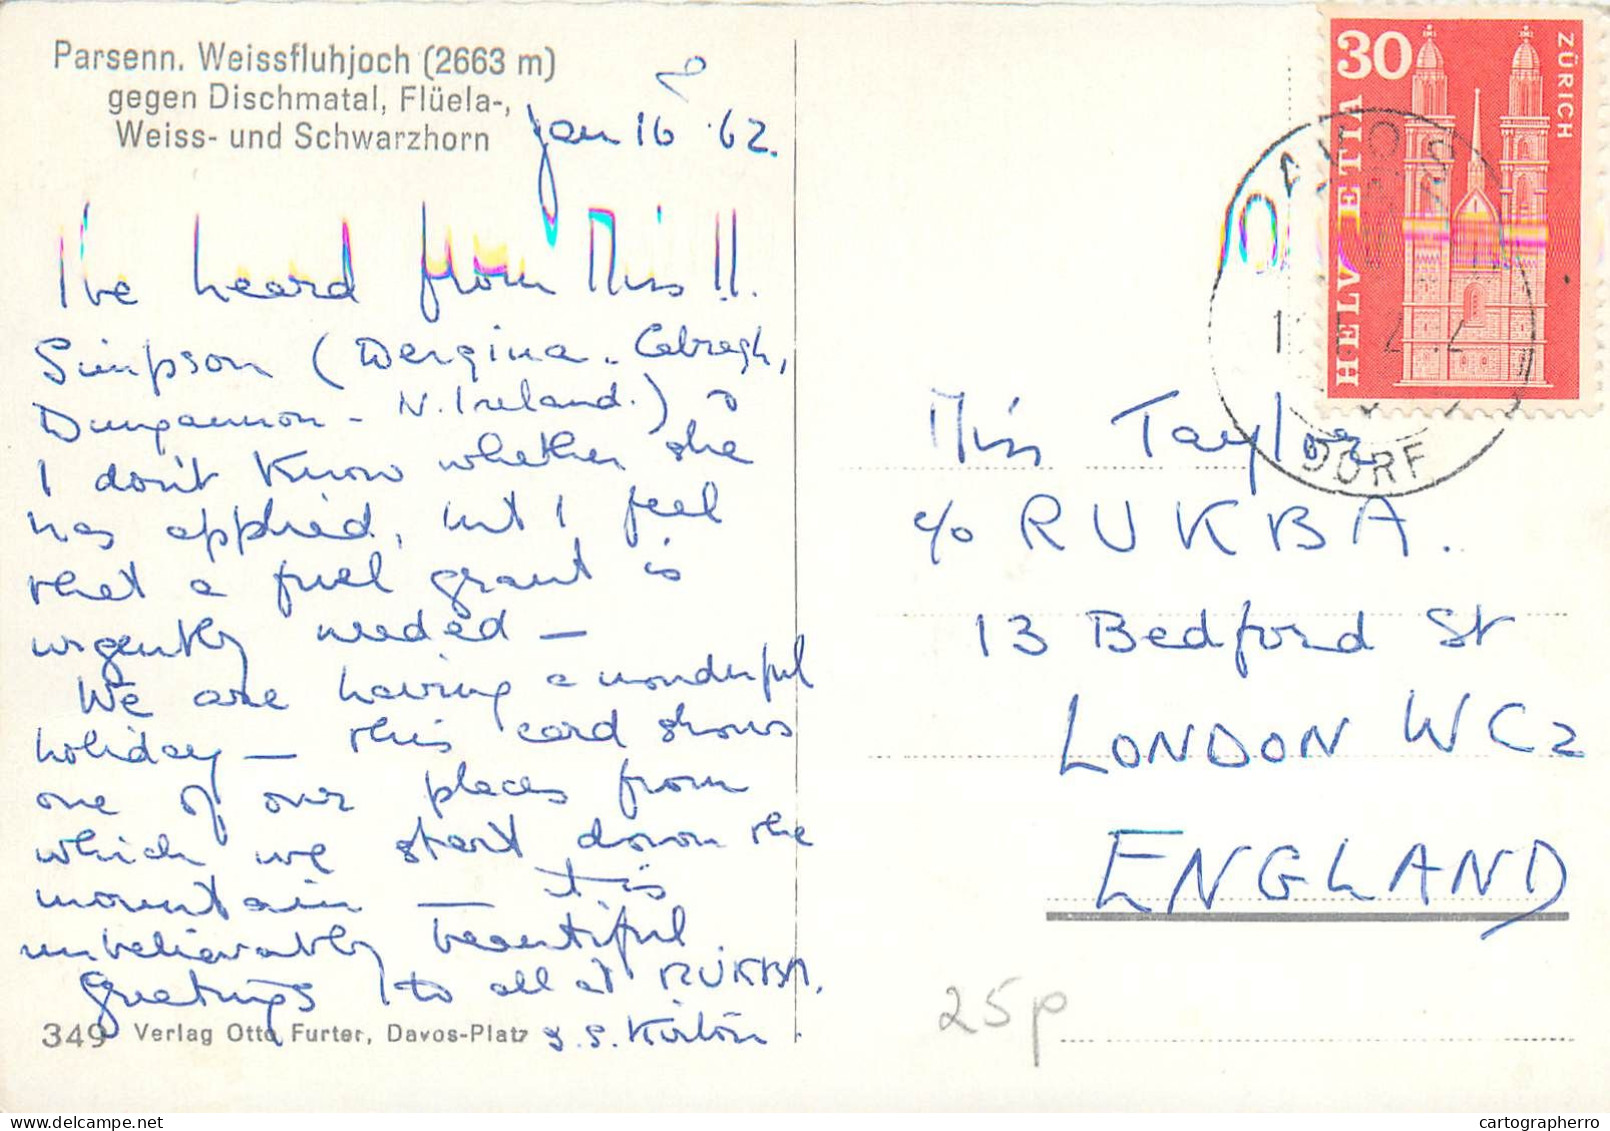 Parsenn. Weissfluhjoch (2663 m)
gegen Dischmatal, Flüela-,
Weiss- und Schwarzhorn
Jan 16 '62.
I've heard from Miss
Simpson (Dergina - Cabragh,
Dungannon - N. Ireland.)
I don't know whether she
has applied, but I feel
that a fuel grant is
urgently needed —
We are having a wonderful
holiday — this card shows
one of our places from
which we start down the
mountain — it is
unbelievably beautiful.
Greetings to all at RUKBA.
349 Verlag Otto Furter, Davos-Platz
30
ZÜRICH
HELVETIA
DAVOS
DORF
Miss Taylor
c/o RUKBA.
13 Bedford St
LONDON WC2
ENGLAND
25p
cartographerro